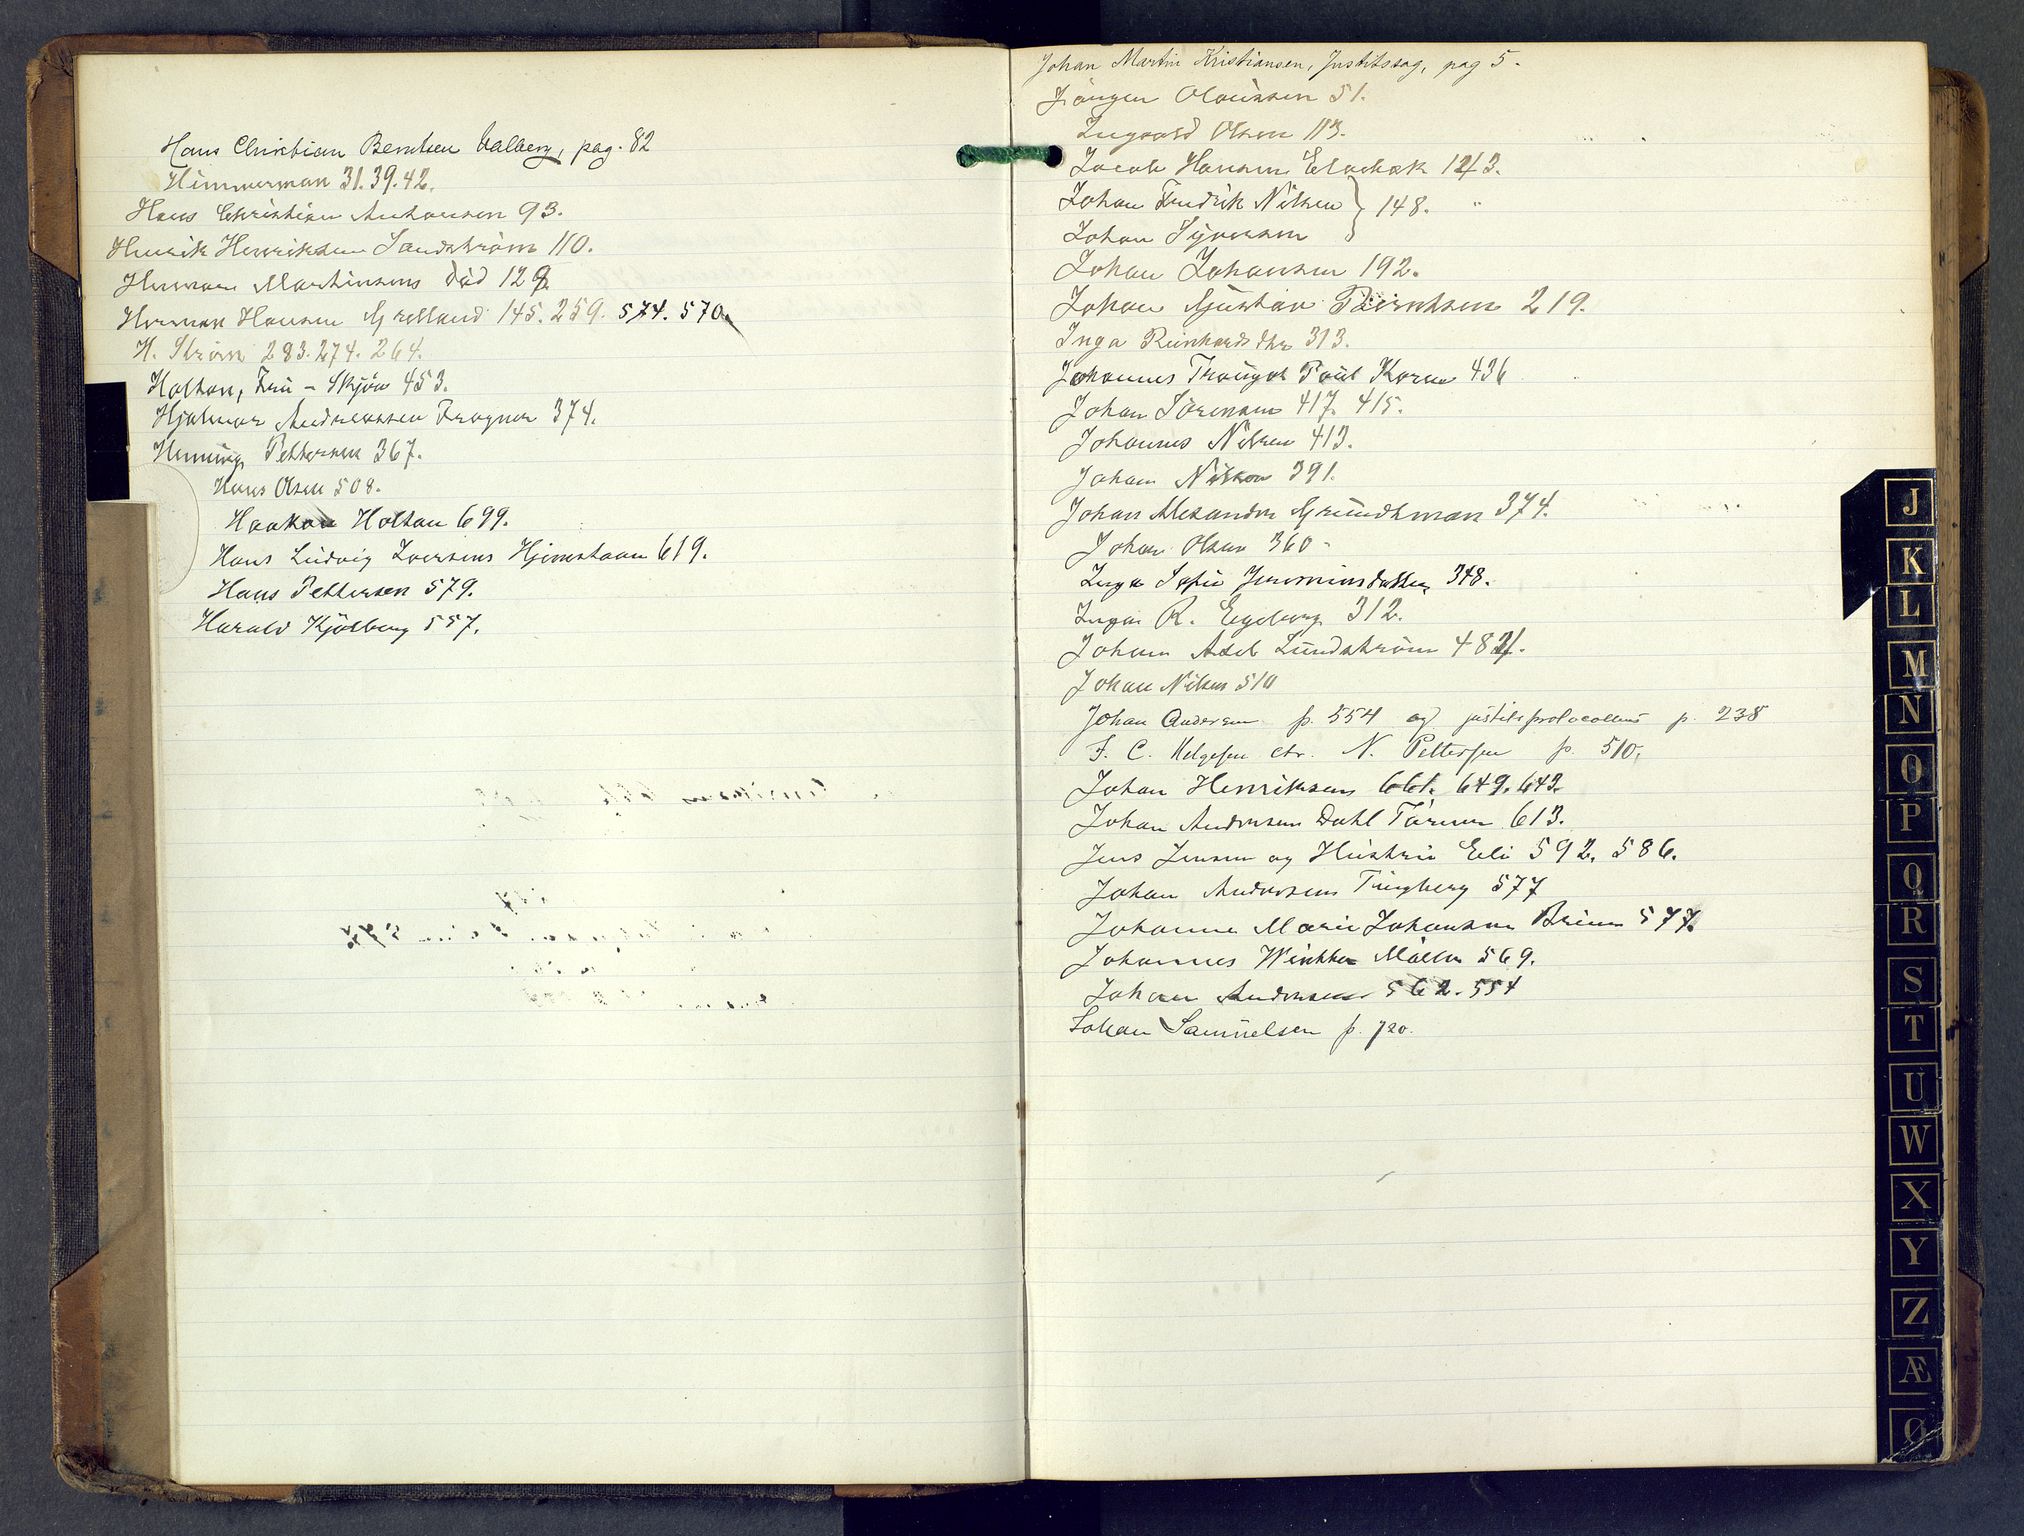 Hans Christian Berntsen Valberg, pag. 82
Himmerman 31. 39. 42.
Hans Christian Anthonsen 93.
Henrik Henriksen Sandström 110.
Herman Martinsens död 129
Herman Hansen Grelland 145. 259. 574. 570.
H. Ström 283. 274. 264.
Holtan, Fru - Skjöv 453.
Hjalmar Andreassen Fragner 374.
Henning Pettersen 367.
Hans Olsen 508.
Haakon Holtan 699.
Hans Ludvig Iversens 619.
Hans Pettersen 579.
Harald Kjölberg 557.
Johan Martin Kristiansen, Justitssag, pag 5.
Jörgen Olaussen 51.
Ingvald Olsen 113.
Jacob Hansen 143.
Johan Fredrik Nilsen } 148.
Johan Syversen
Johan Johansen 192.
Johan Gustav Berntsen 219.
Inga Reinhardsdtr 313.
Johannes Traugot Paul Korn 436
Johan Sörensen 417. 415.
Johannes Nilsen 413.
Johan Nilsen 391.
Johan Alexander Grundtman 374.
Johan Olsen 360-
Inga Sofie 348.
Inga R. Engeborg 312.
Johan Axel Lundström 481.
Johan Nilsen 510
Johan Andersen p. 554 og justitsprotocollens p. 238
F. C. Helgesen ctr. N. Pettersen p. 510,
Johan Henriksens 661. 649. 643.
Johan Andersens Dahl 613.
Jens Jensen og Hustru Eli 592. 586.
Johan Andersens Tingberg 577
Johanne Marie Johansen Bruun 577.
Johannes Winther Möller 569.
Johan Andersens 562. 554
Johan Samuelsen p. 720.
J
K
L
M
N
O
P
Q
R
S
T
U
W
X
Y
Z
Æ
Ø